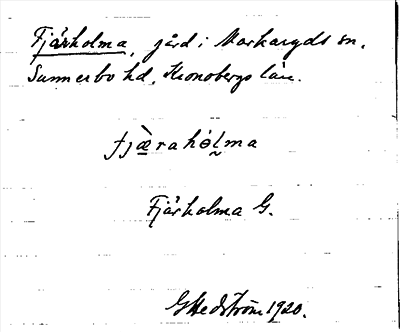 Fjärholma, gård i Markaryds sn.
Sunnerbo hd, Kronobergs län.
fjæ̀rahólma
Fjärholma G.
G Hedström 1920.